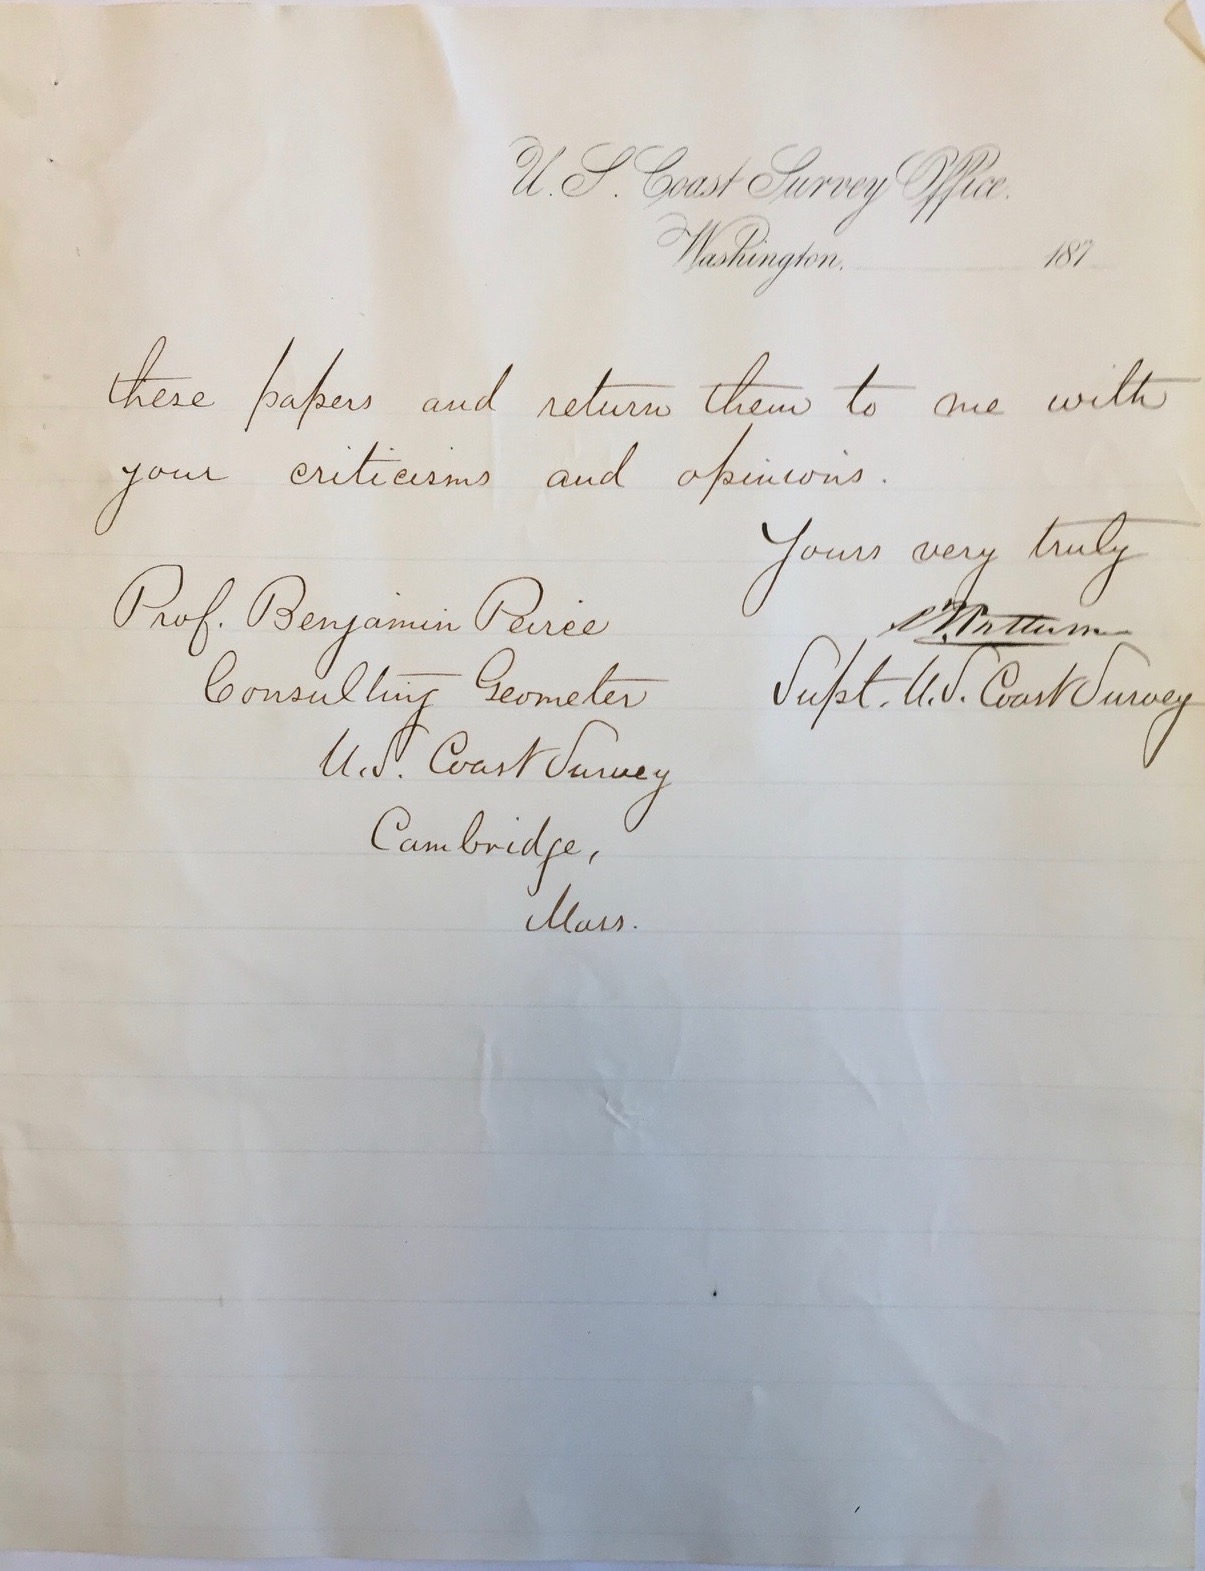 U. S. Coast Survey Office.
Washington, 187
these papers and return them to me with
your criticisms and opinions.
Yours very truly
Prof. Benjamin Peirce
Consulting Geometer
Supt. U.S. Coast Survey
U.S. Coast Survey
Cambridge,
Mass.